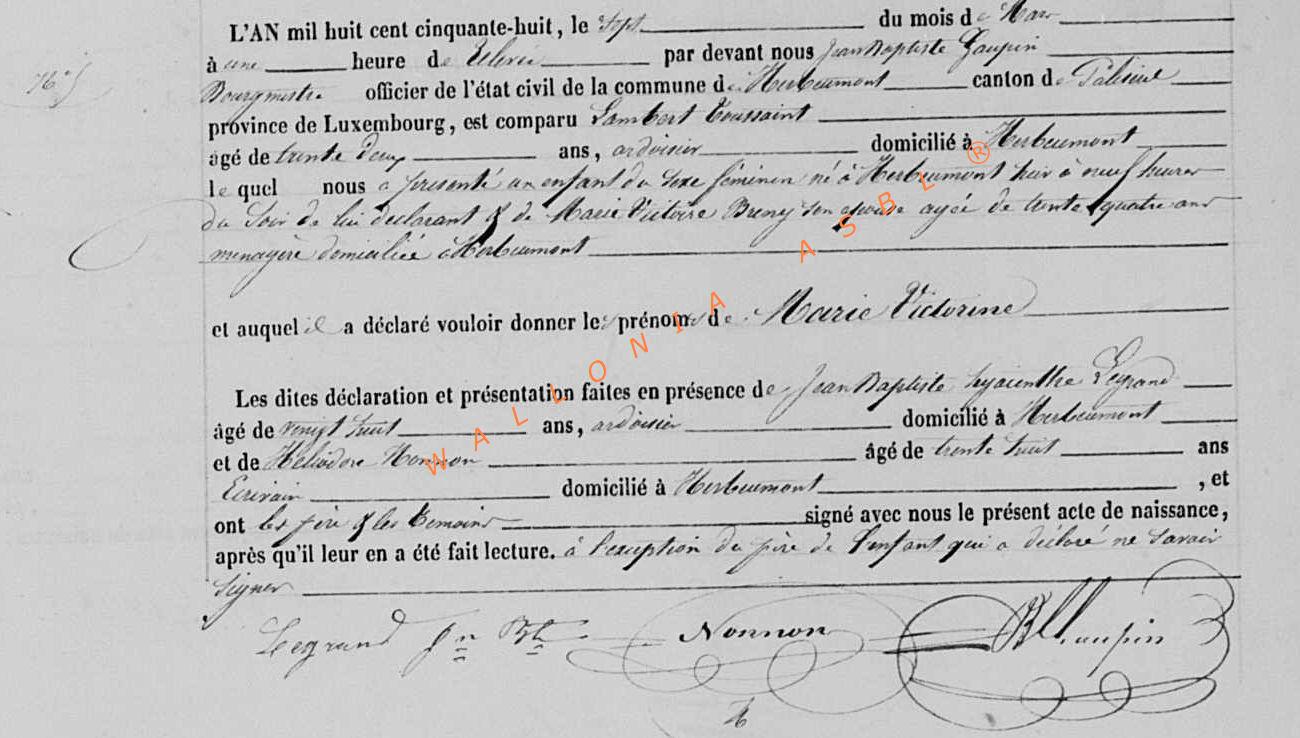 L'AN mil huit cent cinquante-huit, le Sept du mois de Mars
à une heure de Relevée par devant nous Jean Baptiste Gaupin
Bourgmestre officier de l'état civil de la commune de Herbeumont canton de Paliseul
province de Luxembourg, est comparu Lambert Toussaint
âgé de trente deux ans, ardoisier domicilié à Herbeumont
le quel nous a présenté un enfant du sexe féminin né à Herbeumont hier à neuf heures
du Soir de lui déclarant & de Marie Victoire Breny son épouse agée de trente quatre ans
menagère domiciliée à Herbeumont
et auquel il a déclaré vouloir donner les prénoms de Marie Victorine
Les dites déclaration et présentation faites en présence de Jean Baptiste hyacinthe Legrand
âgé de vingt huit ans, ardoisier domicilié à Herbeumont
et de Héliodore Nonnon âgé de trente huit ans
Ecrivain domicilié à Herbeumont, et
ont les père & les temoins signé avec nous le présent acte de naissance,
après qu'il leur en a été fait lecture. à l'exception du père de l'enfant qui a déclaré ne savoir
signer
Legrand Jn Bte Nonnon JB Gaupin
WALLONIA ASBL ®